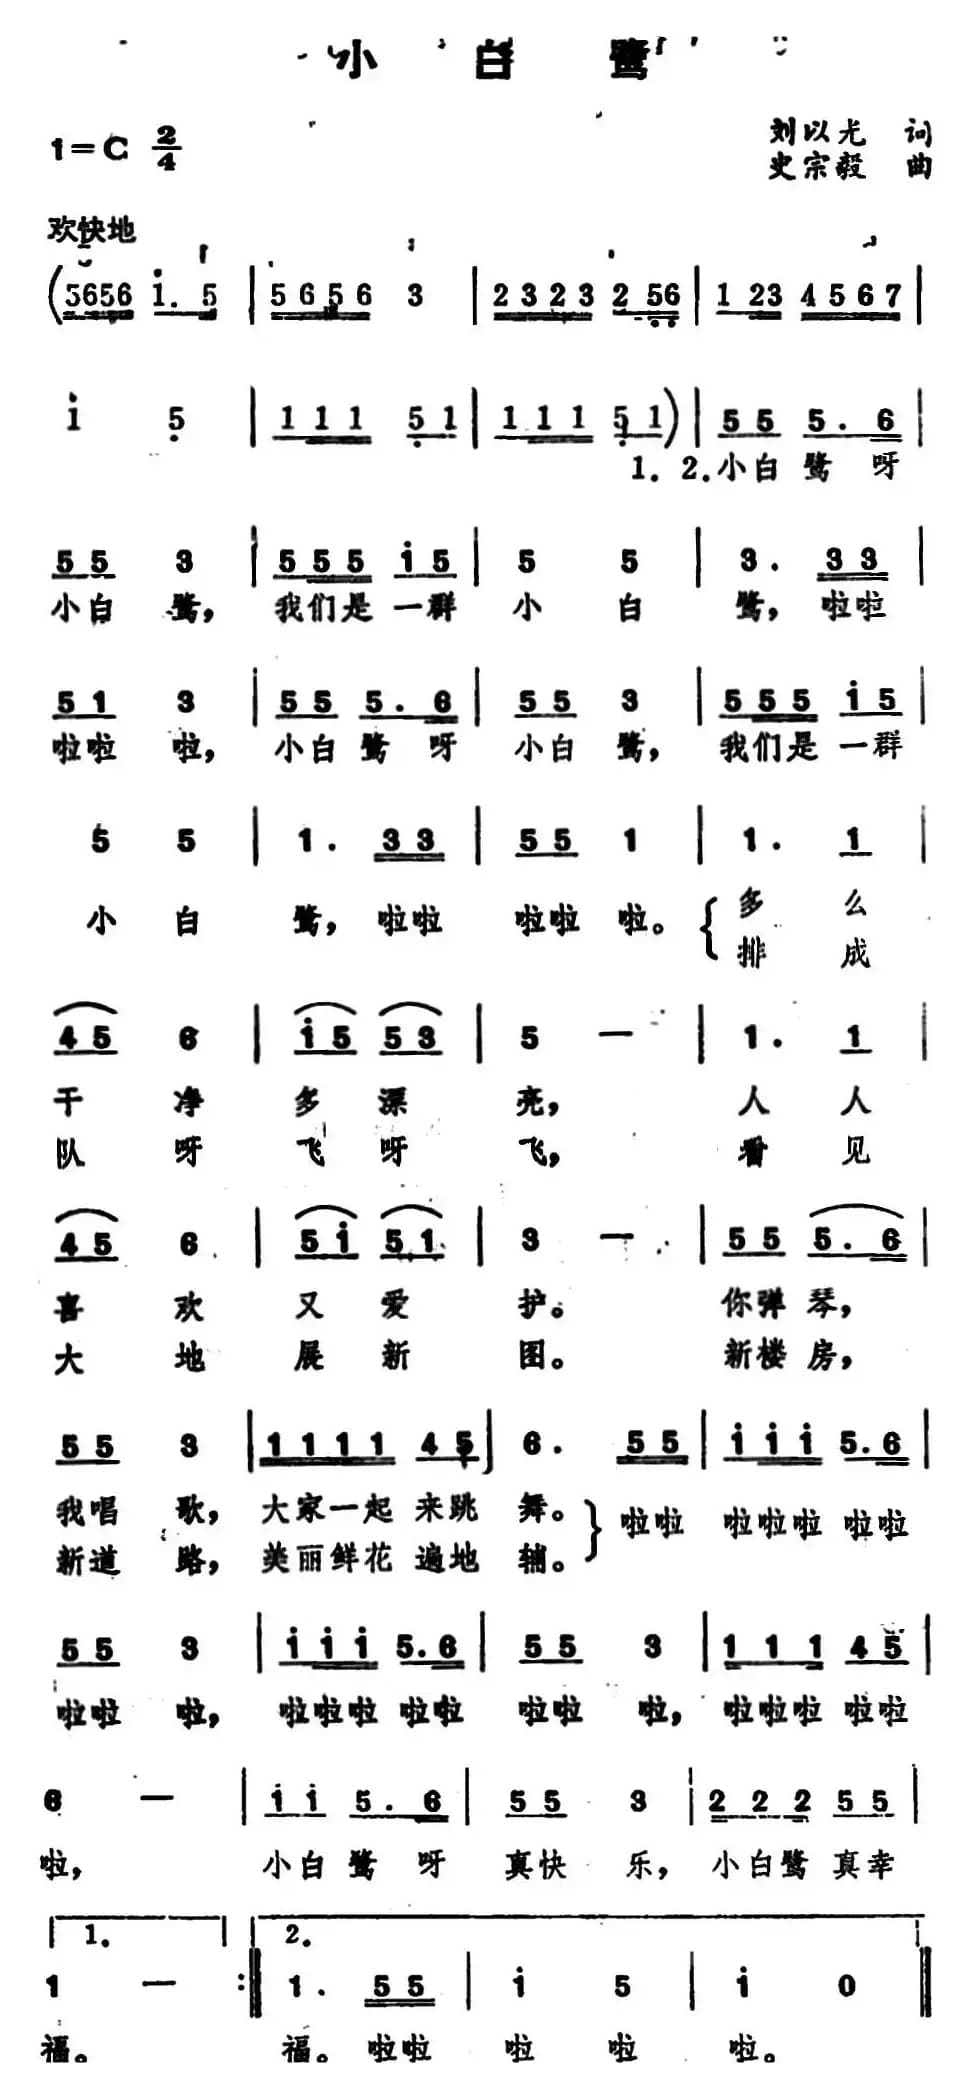 小白鹭
1=C 2/4
刘以光 词
史宗毅 曲
欢快地
(5656 i. 5 | 5656 3 | 2323 2 56 | 1 23 4567 |
i 5 | 1 1 1 5 1 | 1 1 1 5 1) | 5 5 5. 6 |
1. 2.小白 鹭 呀
5 5 3 | 5 5 5 i 5 | 5 5 | 3. 3 3 |
小白 鹭, 我们是 一群 小 白 鹭, 啦啦
5 1 3 | 5 5 5. 6 | 5 5 3 | 5 5 5 i 5 |
啦啦 啦, 小白 鹭 呀 小白 鹭, 我们是 一群
5 5 | 1. 3 3 | 5 5 1 | 1. 1 |
小 白 鹭, 啦啦 啦啦 啦。 { 多 么
排 成
4 5 6 | i 5 5 3 | 5 — | 1. 1 |
干 净 多 漂 亮, 人 人
队 呀 飞 呀 飞, 看 见
4 5 6 | 5 i 5 1 | 3 — | 5 5 5. 6 |
喜 欢 又 爱 护。 你弹 琴,
大 地 展 新 图。 新楼 房,
5 5 3 | 1 1 1 1 4 5 | 6. 5 5 | i i i 5. 6 |
我唱 歌, 大家一起 来跳 舞。 } 啦啦 啦啦啦 啦啦
新道 路, 美丽鲜花 遍地 辅。
5 5 3 | i i i 5. 6 | 5 5 3 | 1 1 1 4 5 |
啦啦 啦, 啦啦啦 啦啦 啦啦 啦, 啦啦啦 啦啦
6 — | i i 5. 6 | 5 5 3 | 2 2 2 5 5 |
啦, 小白 鹭 呀 真快 乐, 小白鹭 真幸
1. 2.
1 — :‖ 1. 5 5 | i 5 | i 0 ‖
福。 福。 啦啦 啦 啦 啦。